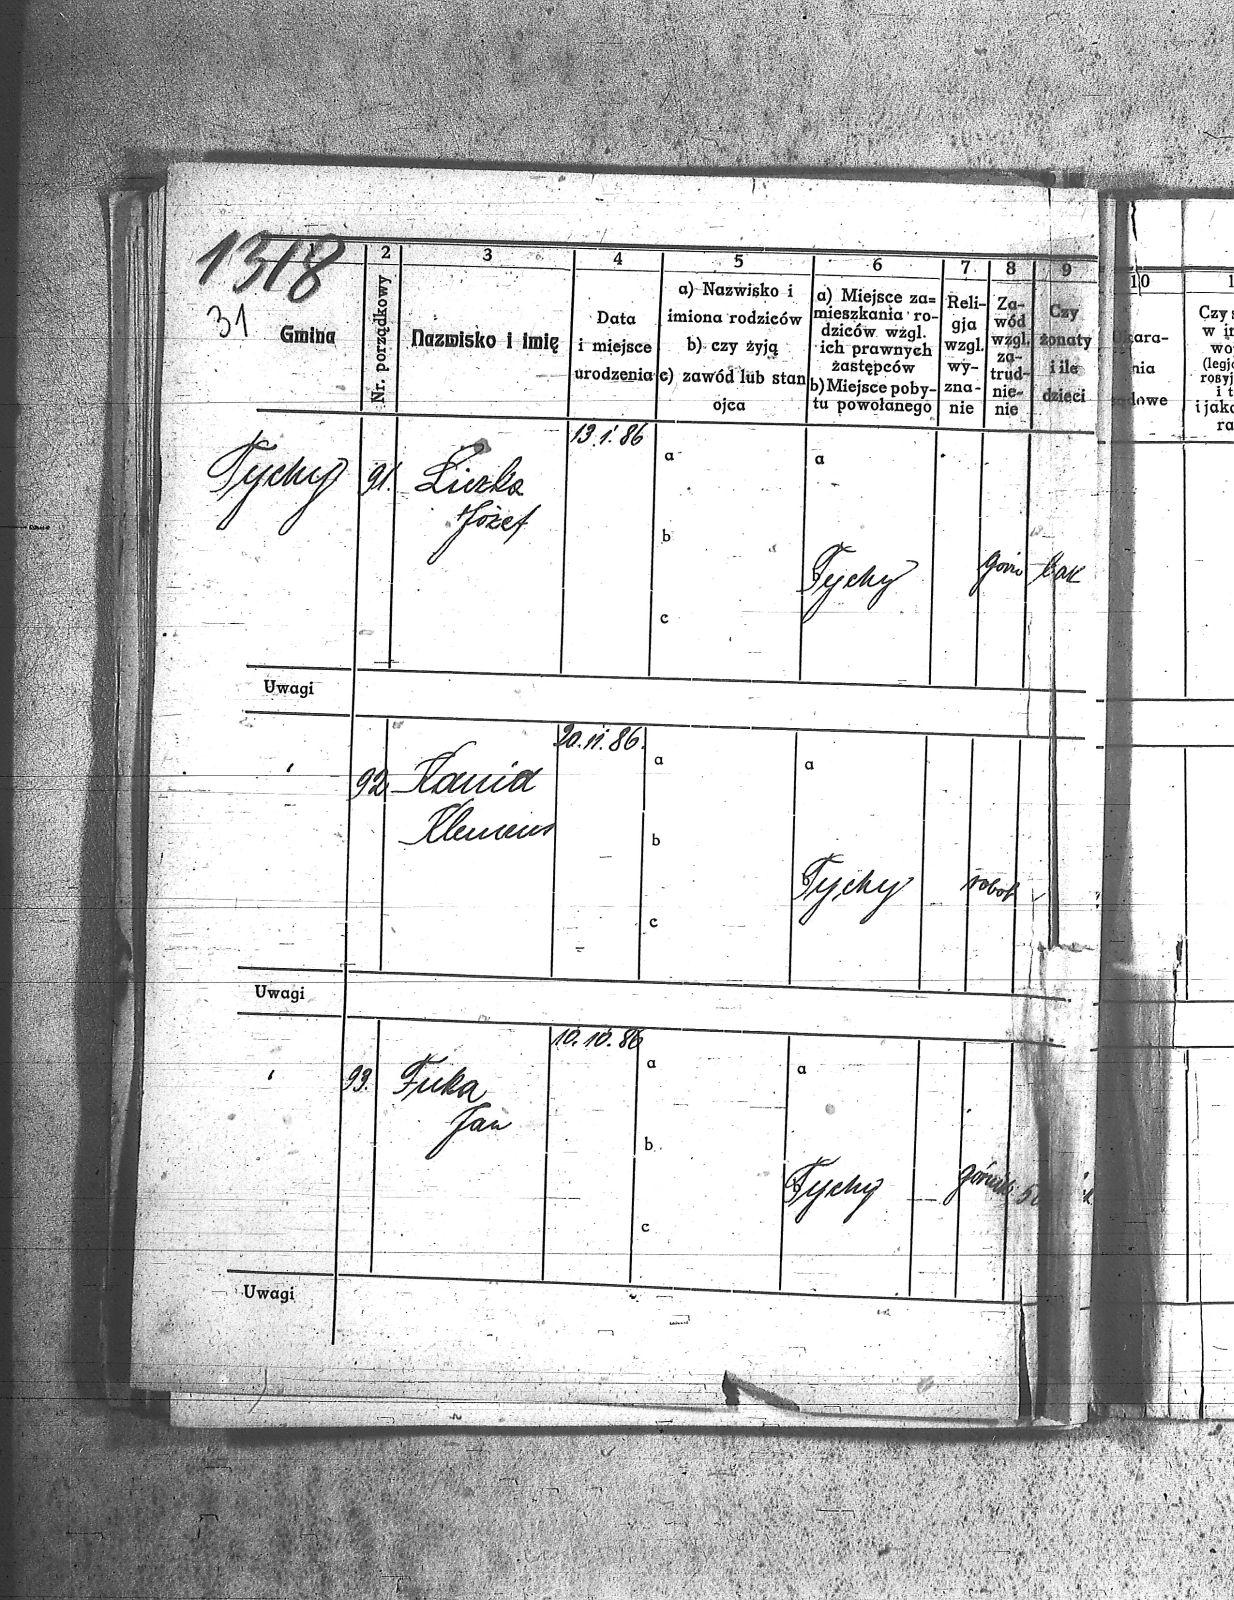 1318
31
1 2 3 4 5 6 7 8 9 10
Gmina
Nr. porządkowy
Nazwisko i imię
Data
i miejsce
urodzenia
a) Nazwisko i
imiona rodziców
b) czy żyją
c) zawód lub stan
ojca
a) Miejsce za=
mieszkania ro-
dziców wzgl.
ich prawnych
zastępców
b) Miejsce poby-
tu powołanego
Reli-
gja
wzgl.
wy-
zna-
nie
Za-
wód
wzgl.
za-
trud-
nie-
nie
Czy
żonaty
i ile
dzieci
kara-
nia
ądowe
Czy s
w in
wo
(legjo
rosyj
i t
i jako
ra
Tychy 91. Liszka 13.1.86 a a
Józef
b
Tychy
c
Uwagi
92 Kania 20.11.86. a a
Klemens
b
Tychy robot
c
Uwagi
93. Fuka 10.10.86 a a
Jan
b
Tychy górnik
c
Uwagi